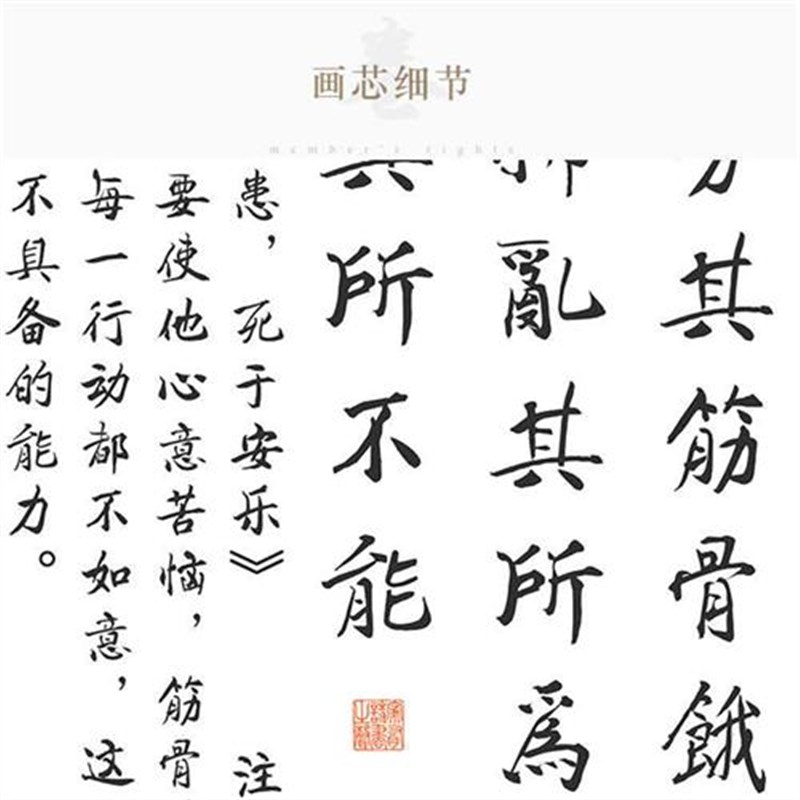 画芯细节
member's rights
其筋骨餓
亂其所為
所不能
患，死于安乐》注
要使他心意苦恼，筋骨
每一行动都不如意，这
不具备的能力。